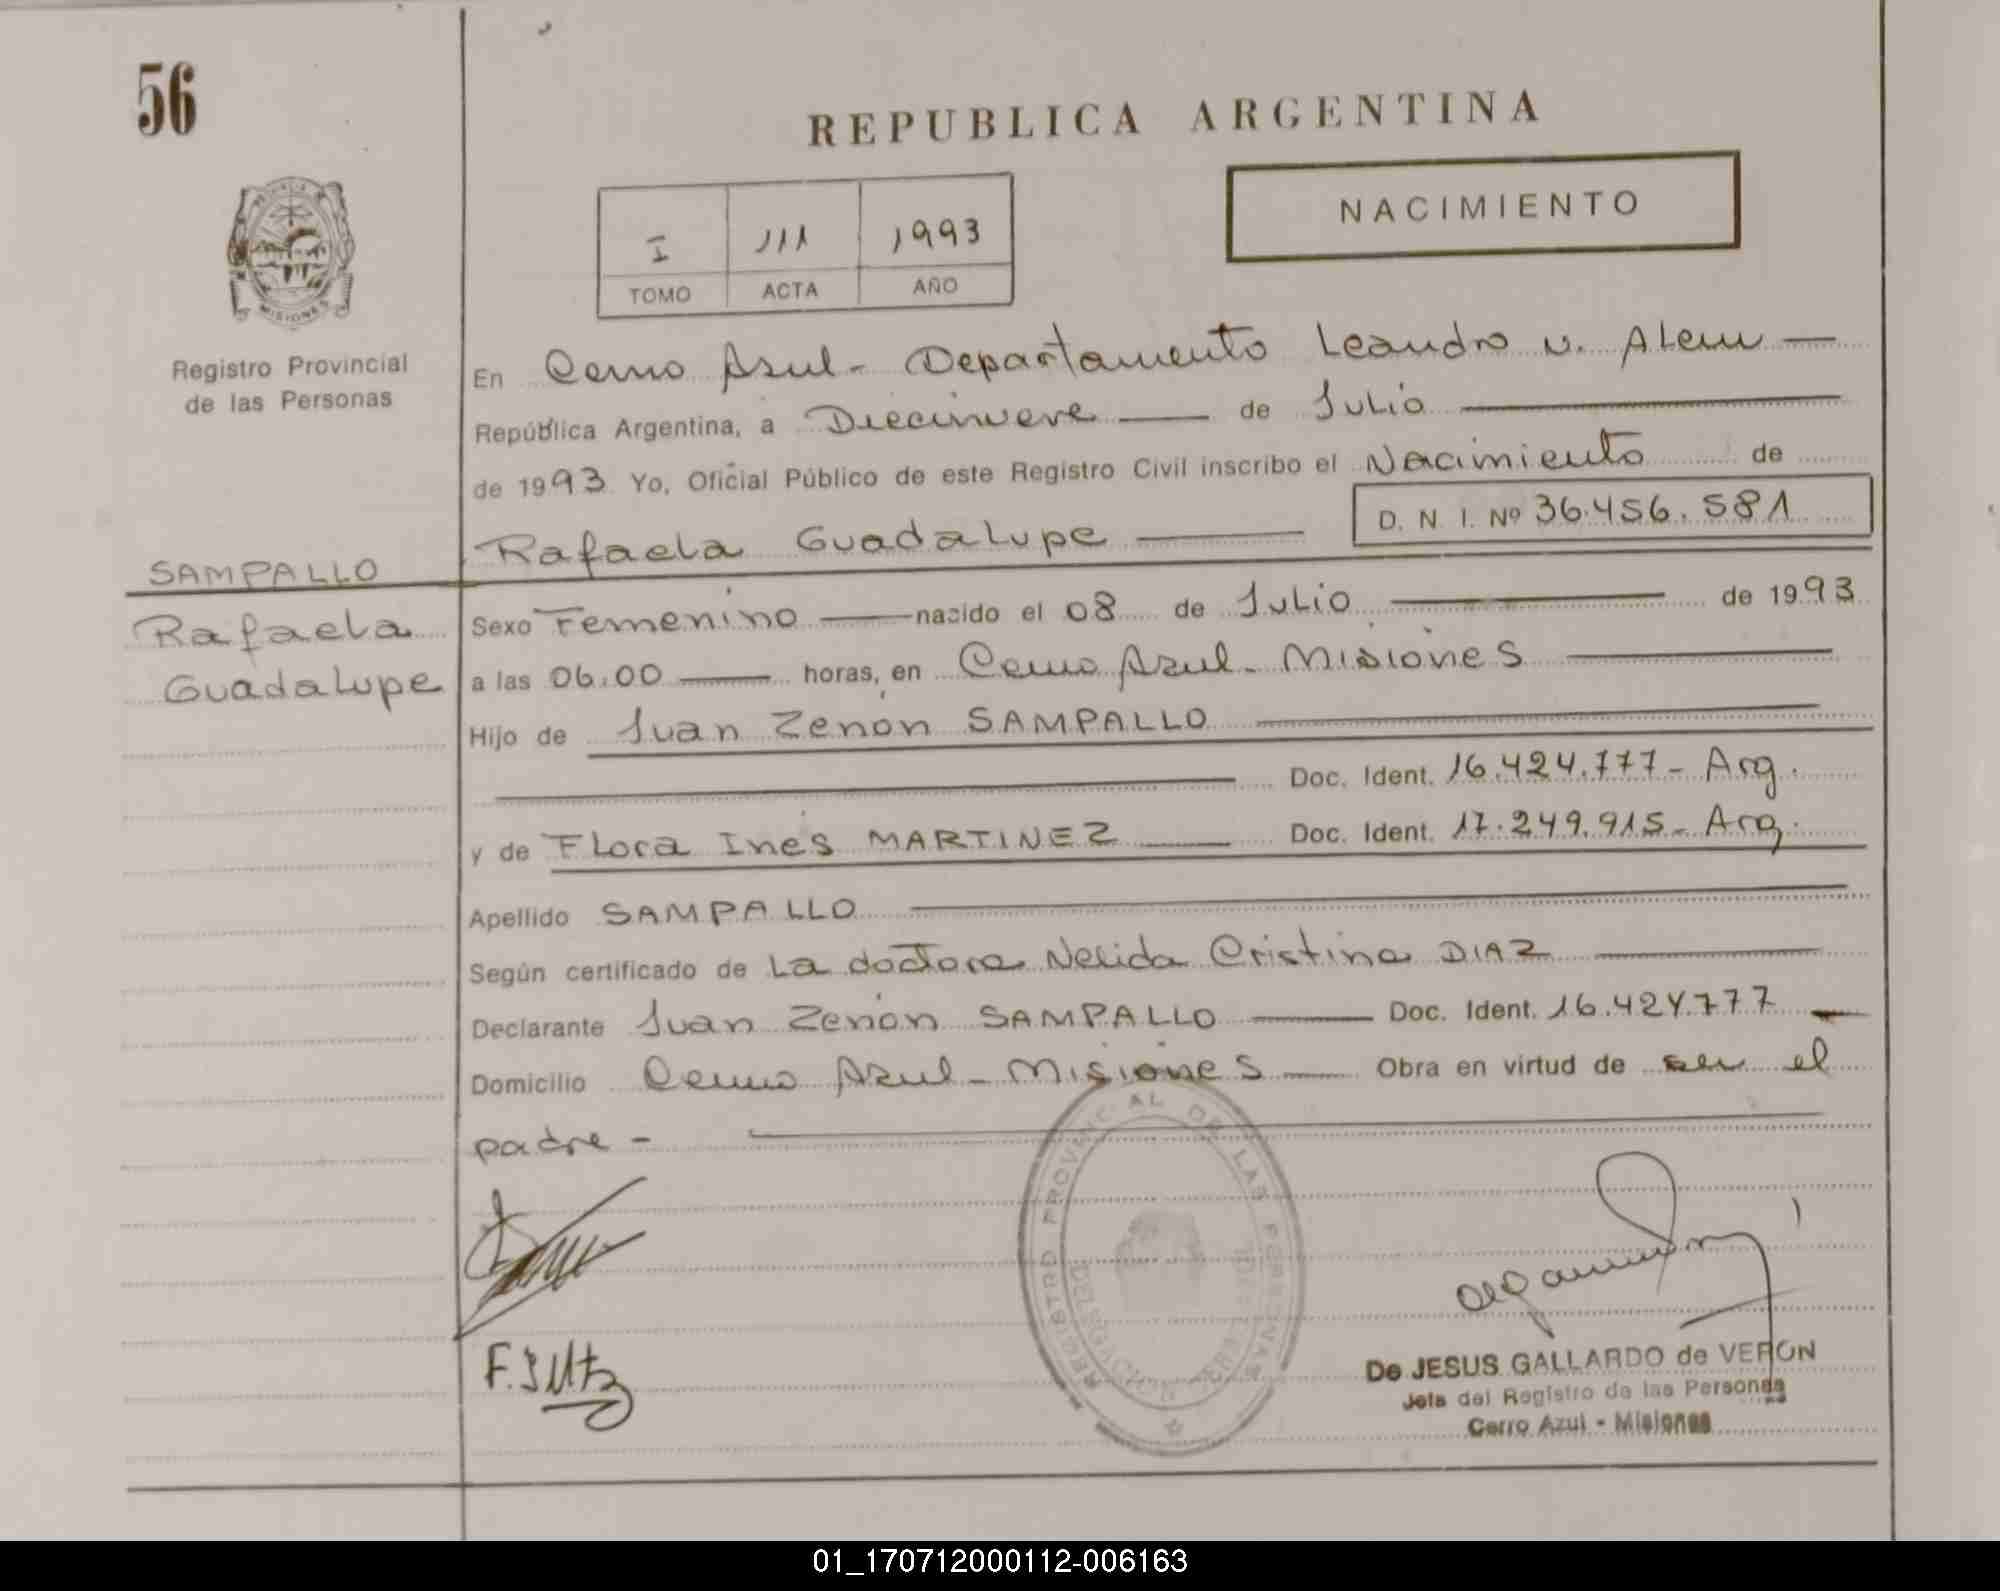 56
REPUBLICA ARGENTINA
NACIMIENTO
I 111 1993
TOMO ACTA AÑO
MISIONES
Registro Provincial
de las Personas
En Cerro Azul - Departamento Leandro N. Alem
República Argentina, a Diecinueve de Julio
de 1993 Yo, Oficial Público de este Registro Civil inscribo el Nacimiento de
Rafaela Guadalupe D. N. I. Nº 36.456.581
SAMPALLO
Rafaela
Guadalupe
Sexo Femenino nacido el 08 de Julio de 1993
a las 06.00 horas, en Cerro Azul - Misiones
Hijo de Juan Zenón SAMPALLO
Doc. Ident. 16.424.777 - Arg.
y de Flora Inés MARTINEZ Doc. Ident. 17.249.915 - Arg.
Apellido SAMPALLO
Según certificado de La doctora Nelida Cristina DIAZ
Declarante Juan Zenón SAMPALLO Doc. Ident. 16.424.777
Domicilio Cerro Azul - Misiones Obra en virtud de ser el
padre -
REGISTRO PROVINCIAL DE LAS PERSONAS
DELEGACION
De JESUS GALLARDO de VERON
Jefa del Registro de las Personas
Cerro Azul - Misiones
01_170712000112-006163